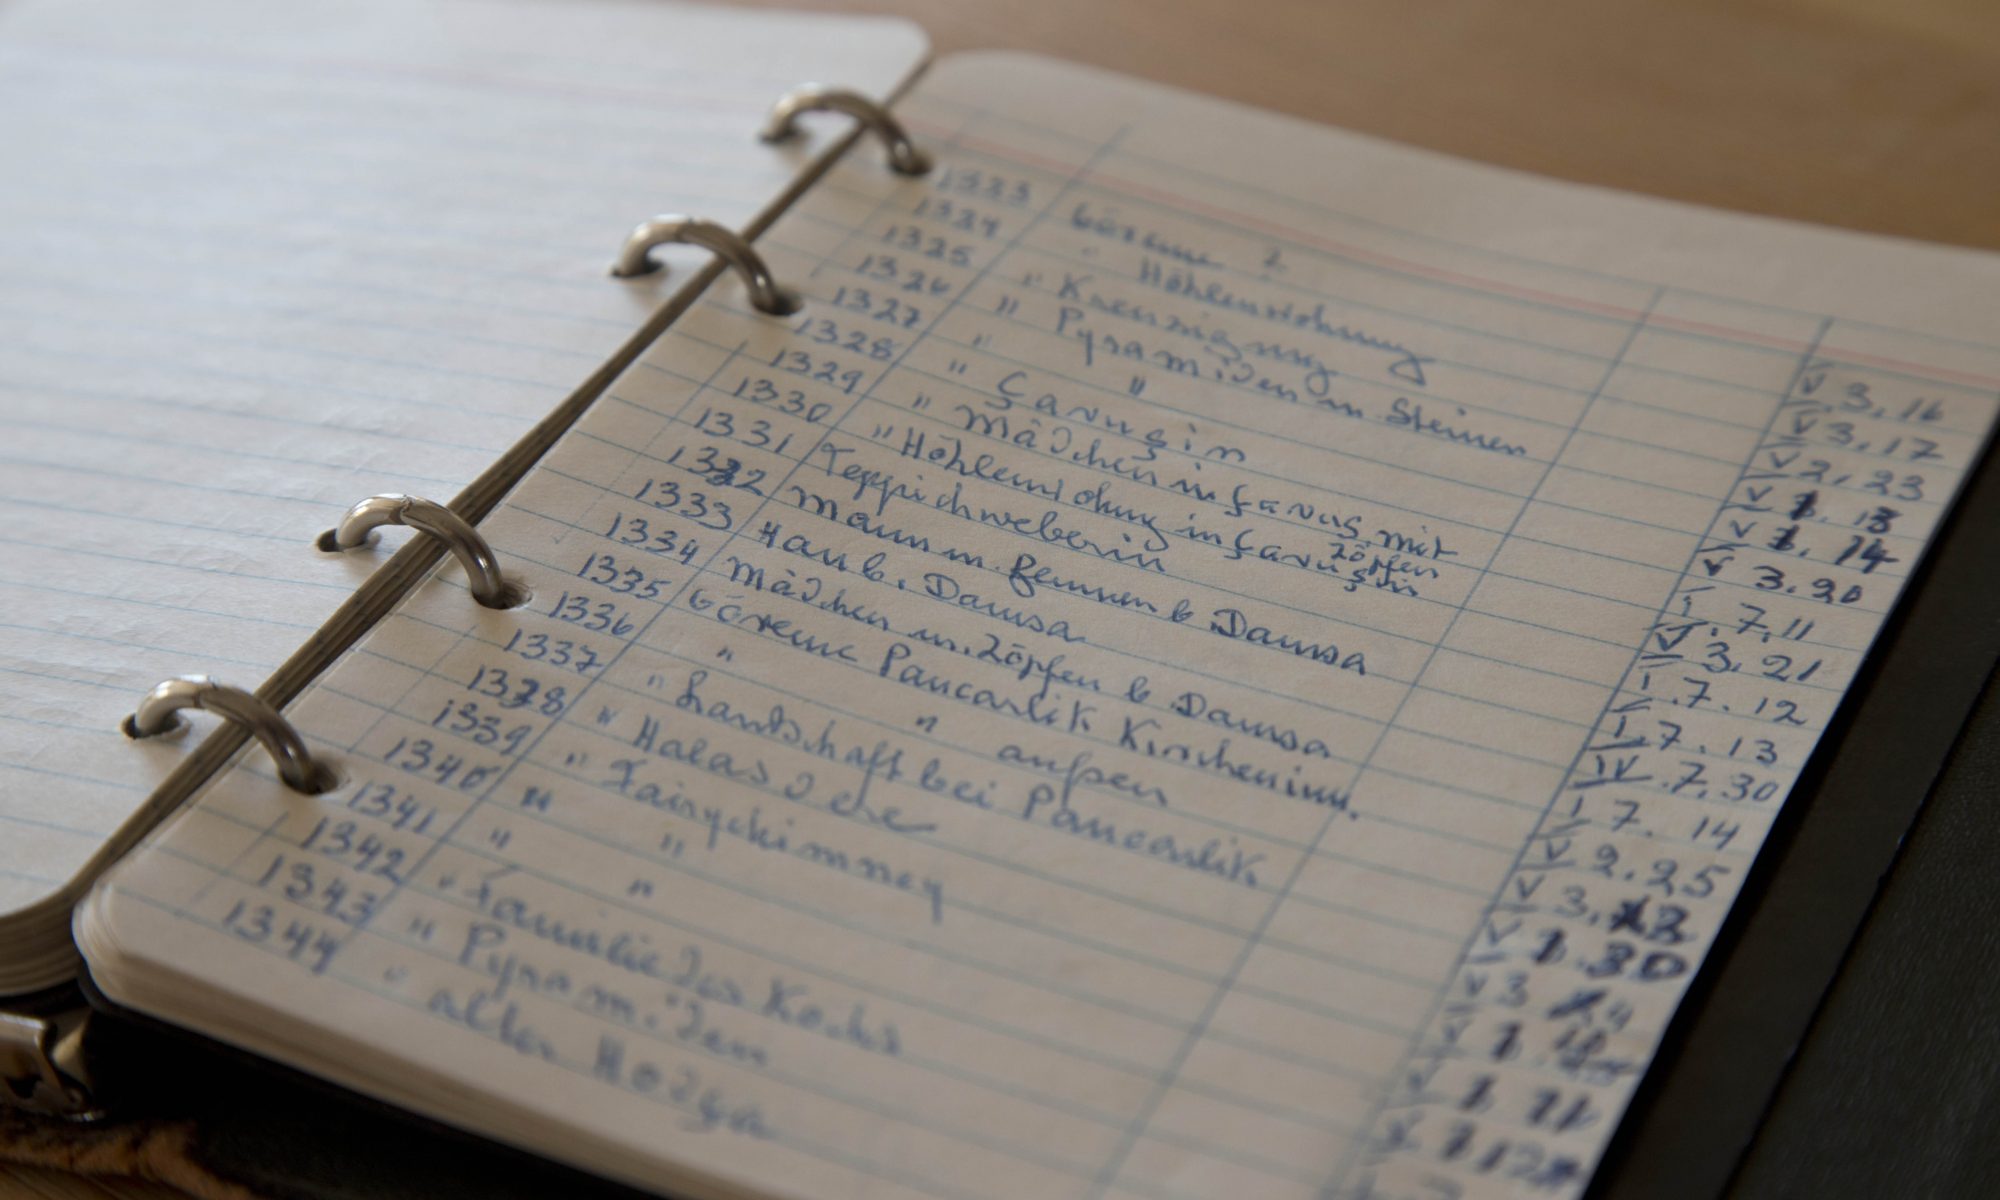 1323 Göreme 2 V 3.16
1324 " Höhlenwohnung V 3.17
1325 " Kreuzigung V 2.23
1326 " Pyramiden m Steinen V 1.13
1327 " " V 1.14
1328 " Çavuşin V 3.20
1329 " Mädchen in Çavuş. mit I.7.11
Zöpfen
1330 " Höhlenwohnung in Çavuşin V 3.21
1331 Teppichweberin I.7.12
1332 Mann m. b Damsa I.7.13
1333 Han b. Damsa IV.7.30
1334 Mädchen m. Zöpfen b Damsa I 7.14
1335 Göreme Pancarlik Kircheninn. V 2.25
1336 " " außen V 3.
1337 " Landschaft bei Pancarlik V 1.30
1338 " Halasdere V 3
1339 " Fairychimney V 1
1340 " " V 1 11
1341 " " 1 12
1342 " Familie des Kochs
1343 " Pyramiden
1344 " alter Hodga